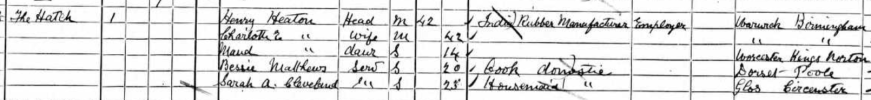 The Hatch 1 Henry Heaton Head M 42 India Rubber Manufacturer Employer Warwick Birmingham
Charlotte E " Wife M 42 " "
Maud " daur S 14 Worcester Kings Norton
Bessie Matthews Serv S 20 Cook domestic Dorset Poole
Sarah A. Cleveland " S 25 Housemaid " Glos Cirencester